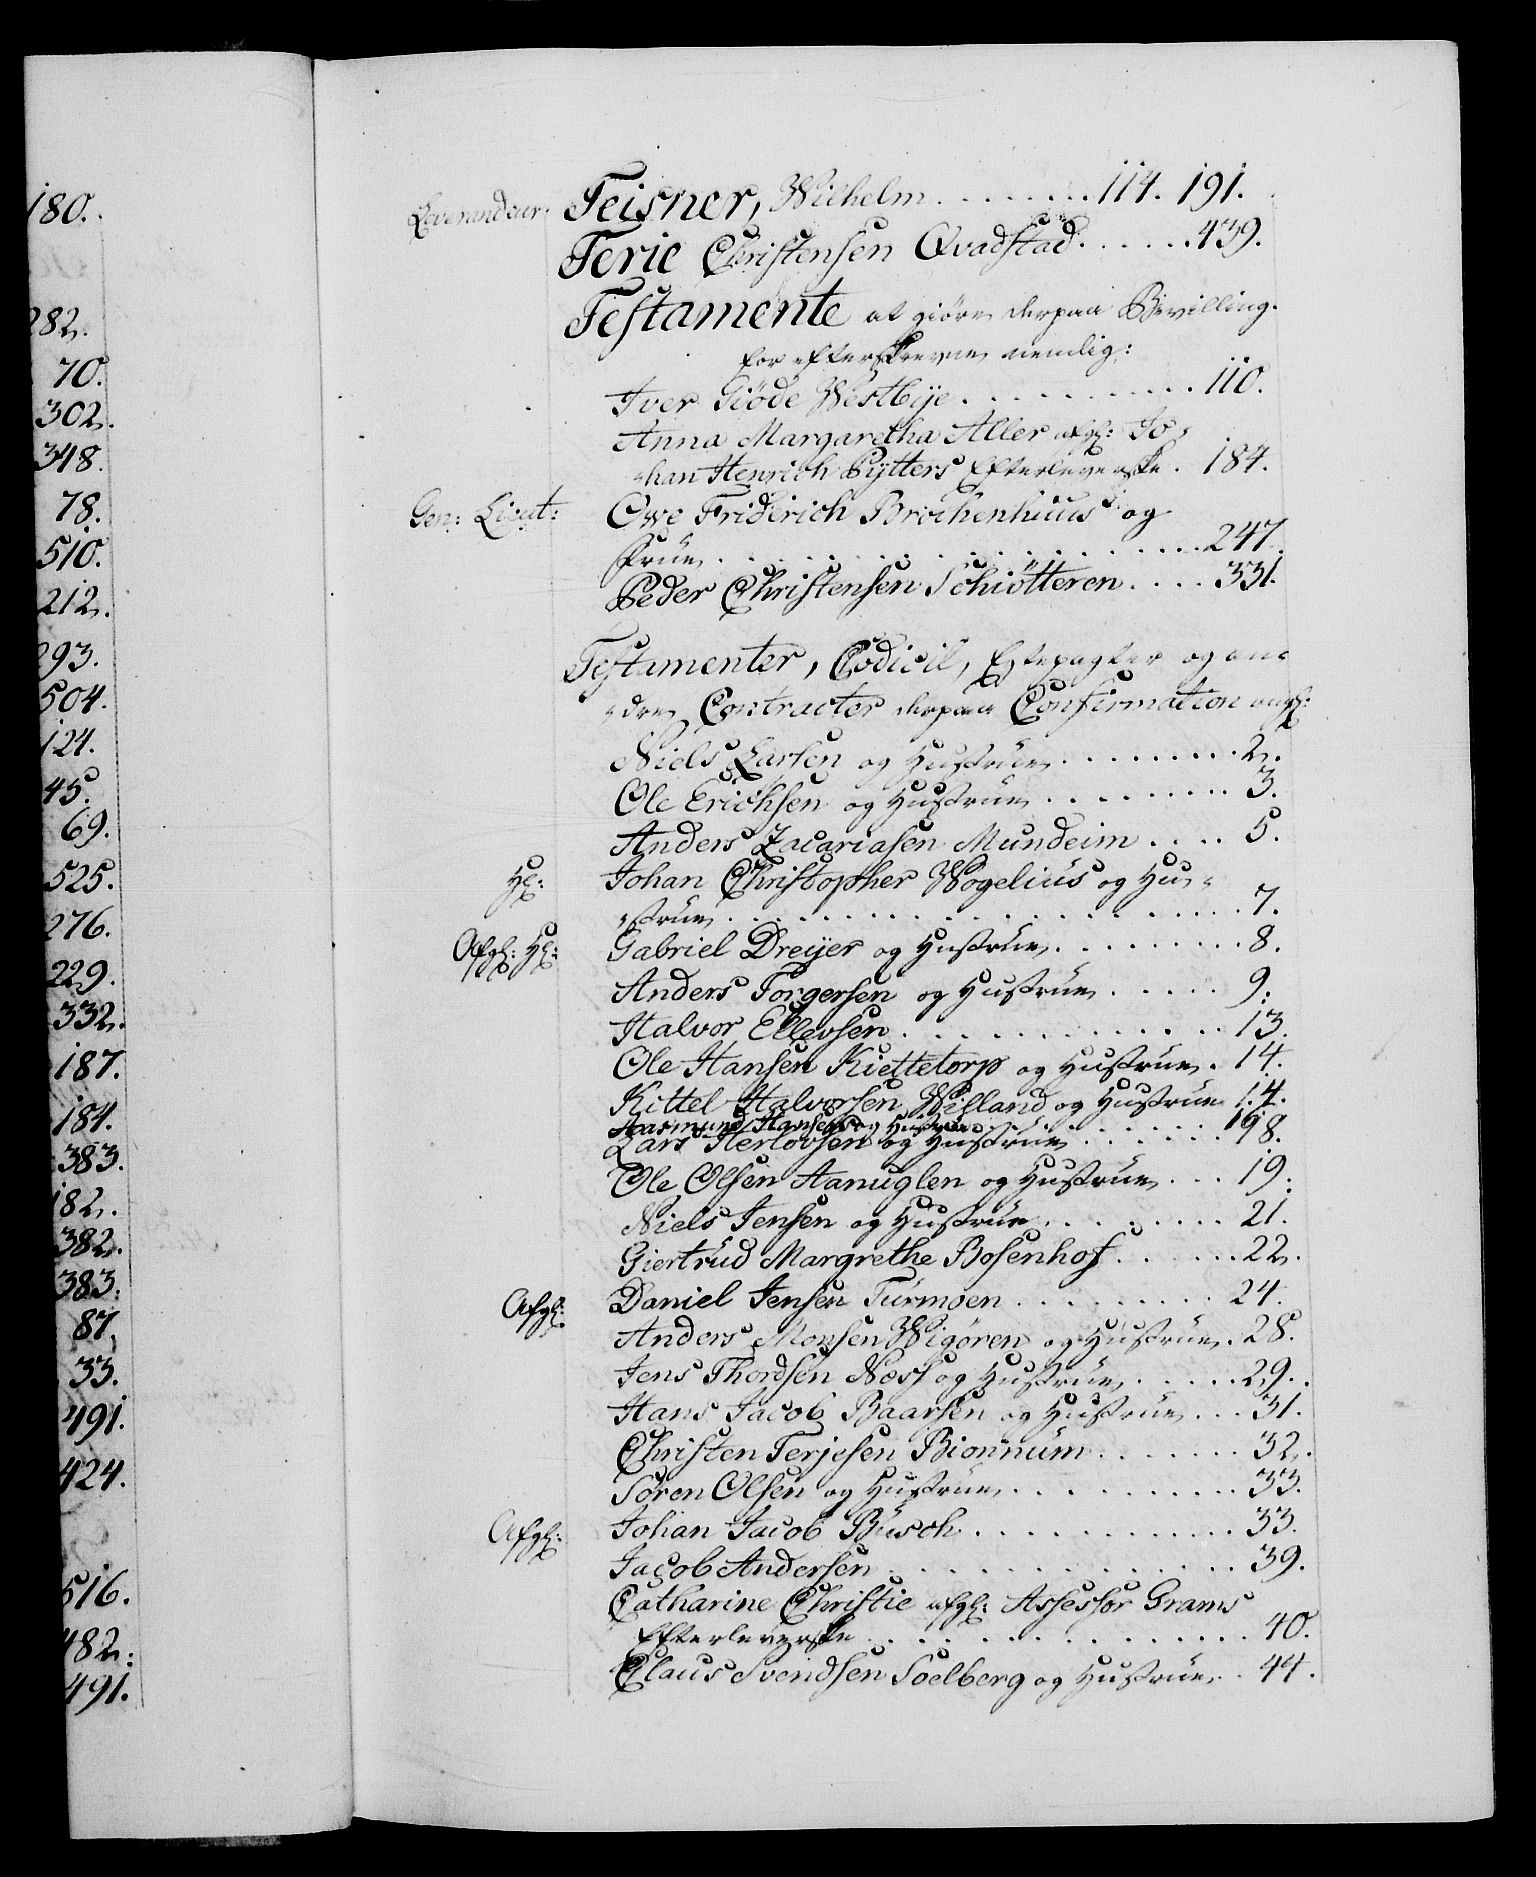 180.
282.
70.
302.
348.
78.
510.
212.
293.
504.
124.
45.
69.
525.
276.
229.
332.
187.
184.
383.
182.
382.
383.
87.
33.
491.
424.
516.
482.
491.
Leverandeur: Teisner, Wilhelm . . . . . . . . 114. 191.
Terie Christensen Qvadstad . . . . . . 439.
Testamente at giøre derpaa Bevilling.
for efterskrevne nemlig:
Iver Giöde Westbÿe . . . . . . . . . . . 110.
Anna Margaretha Aller afgl: Jo=
=han Henrich Pÿtters Efterleverske . 184.
Gen: Lieut: Owe Friderich Brochenhuus og
Frue . . . . . . . . . . . . . . . . . . 247.
Peder Christensen Schiötteren . . . . 331.
Testamenter, Codicil, Egtepagter og an=
=dre Contracter derpaa Confirmation angl:
Niels Larsen og Hustrue . . . . . . . . . 2.
Ole Erichsen og Hustrue . . . . . . . . . 3.
Anders Zacariasen Mundeim . . . . 5.
Hr: Johan Christopher Wogelius og Hu=
=strue . . . . . . . . . . . . . . . . . . . . . 7.
Afgl: Hr: Gabriel Dreÿer og Hustrue . . . . . . . . . 8.
Anders Torgersen og Hustrue . . . . . 9.
Halvor Ellevsen . . . . . . . . . . . . . 13.
Ole Hansen Kiettetorp og Hustrue . 14.
Kittel Halvorsen Wisland og Hustrue 14.
Aasmund Hansen og Hustrue . . . . . . . 19
Lars Herlovsen og Hustrue . . . . . . . 18.
Ole Olsen Aanuglen og Hustrue . . . 19.
Niels Jensen og Hustrue . . . . . . . . 21.
Giertrud Margrethe Bosenhof . . . . . . 22.
Afgl: Daniel Jensen Turmoen . . . . . . . . . 24.
Anders Monsen Wigøren og Hustrue . 28.
Jens Thordsen Næss og Hustrue . . . . . 29.
Hans Jacob Baarsen og Hustrue . . . 31.
Christen Terjesen Bionnum . . . . . . . 32.
Søren Olsen og Hustrue . . . . . . . . . . 33.
Afgl: Johan Jacob Busch . . . . . . . . . . . . 33.
Jacob Andersen . . . . . . . . . . . . . 39.
Catharine Christie afgl: Assessor Grams
Efterleverske . . . . . . . . . . . . . . 40.
Claus Svendsen Soelberg og Hustrue . . 44.